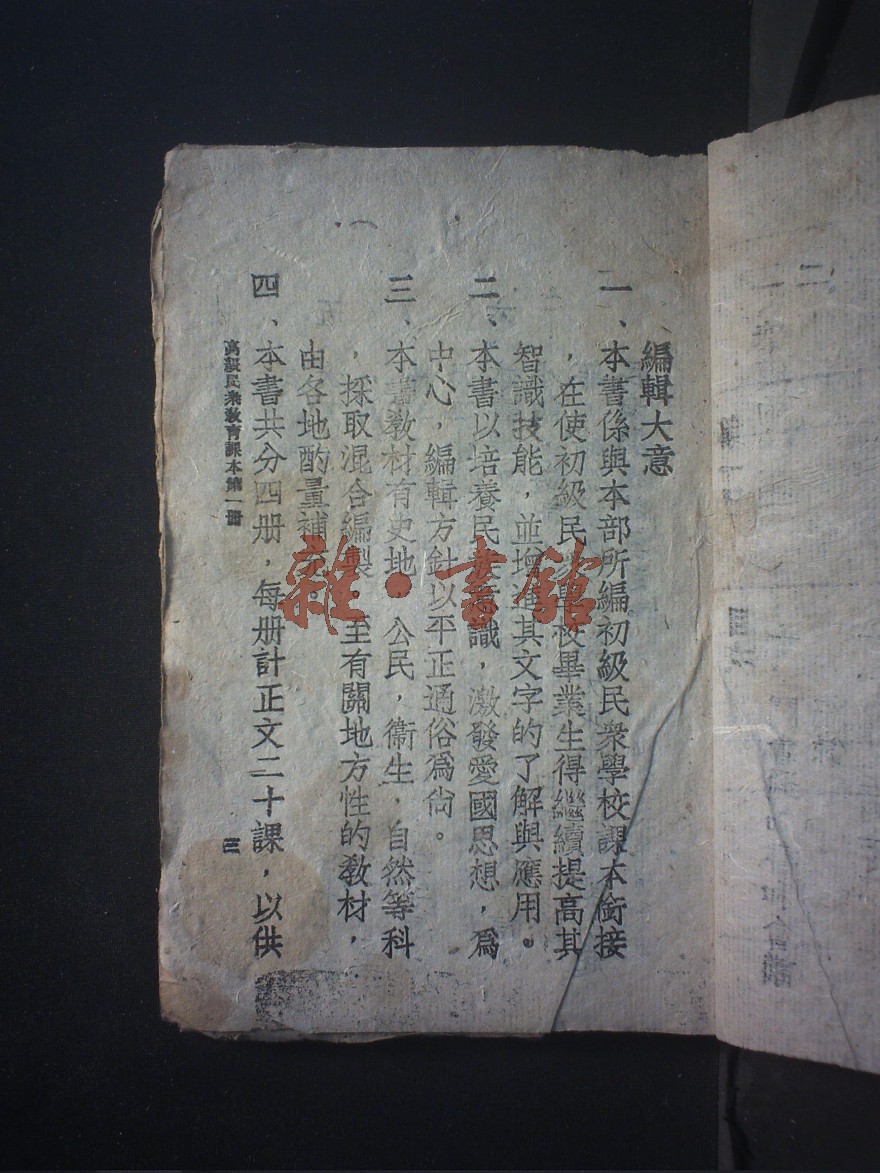 編輯大意
一、本書係與本部所編初級民衆學校課本銜接
，在使初級民衆學校畢業生得繼續提高其
智識技能，並增進其文字的了解與應用。
二、本書以培養民族意識，激發愛國思想，爲
中心，編輯方針以平正通俗爲尙。
三、本書敎材有史地，公民，衞生，自然等科
，採取混合編製。至有關地方性的敎材，
由各地酌量補充。
四、本書共分四册，每册計正文二十課，以供
高級民衆敎育課本第一册
三
雜·書館